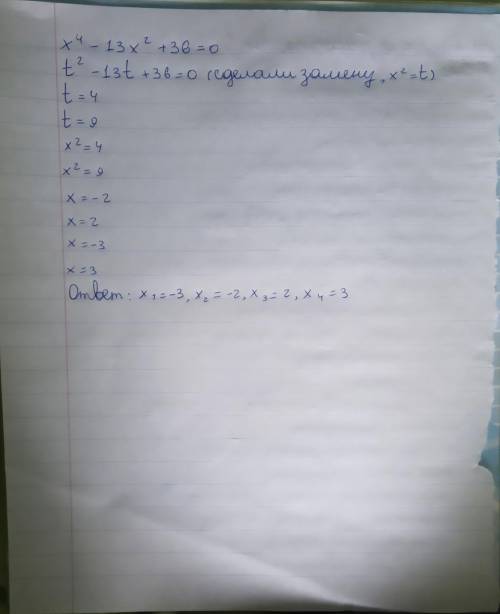 x⁴ - 13x² + 36 = 0
t² - 13t + 36 = 0 (сделали замену, x² = t)
t = 4
t = 9
x² = 4
x² = 9
x = -2
x = 2
x = -3
x = 3
Ответ: x₁ = -3, x₂ = -2, x₃ = 2, x₄ = 3